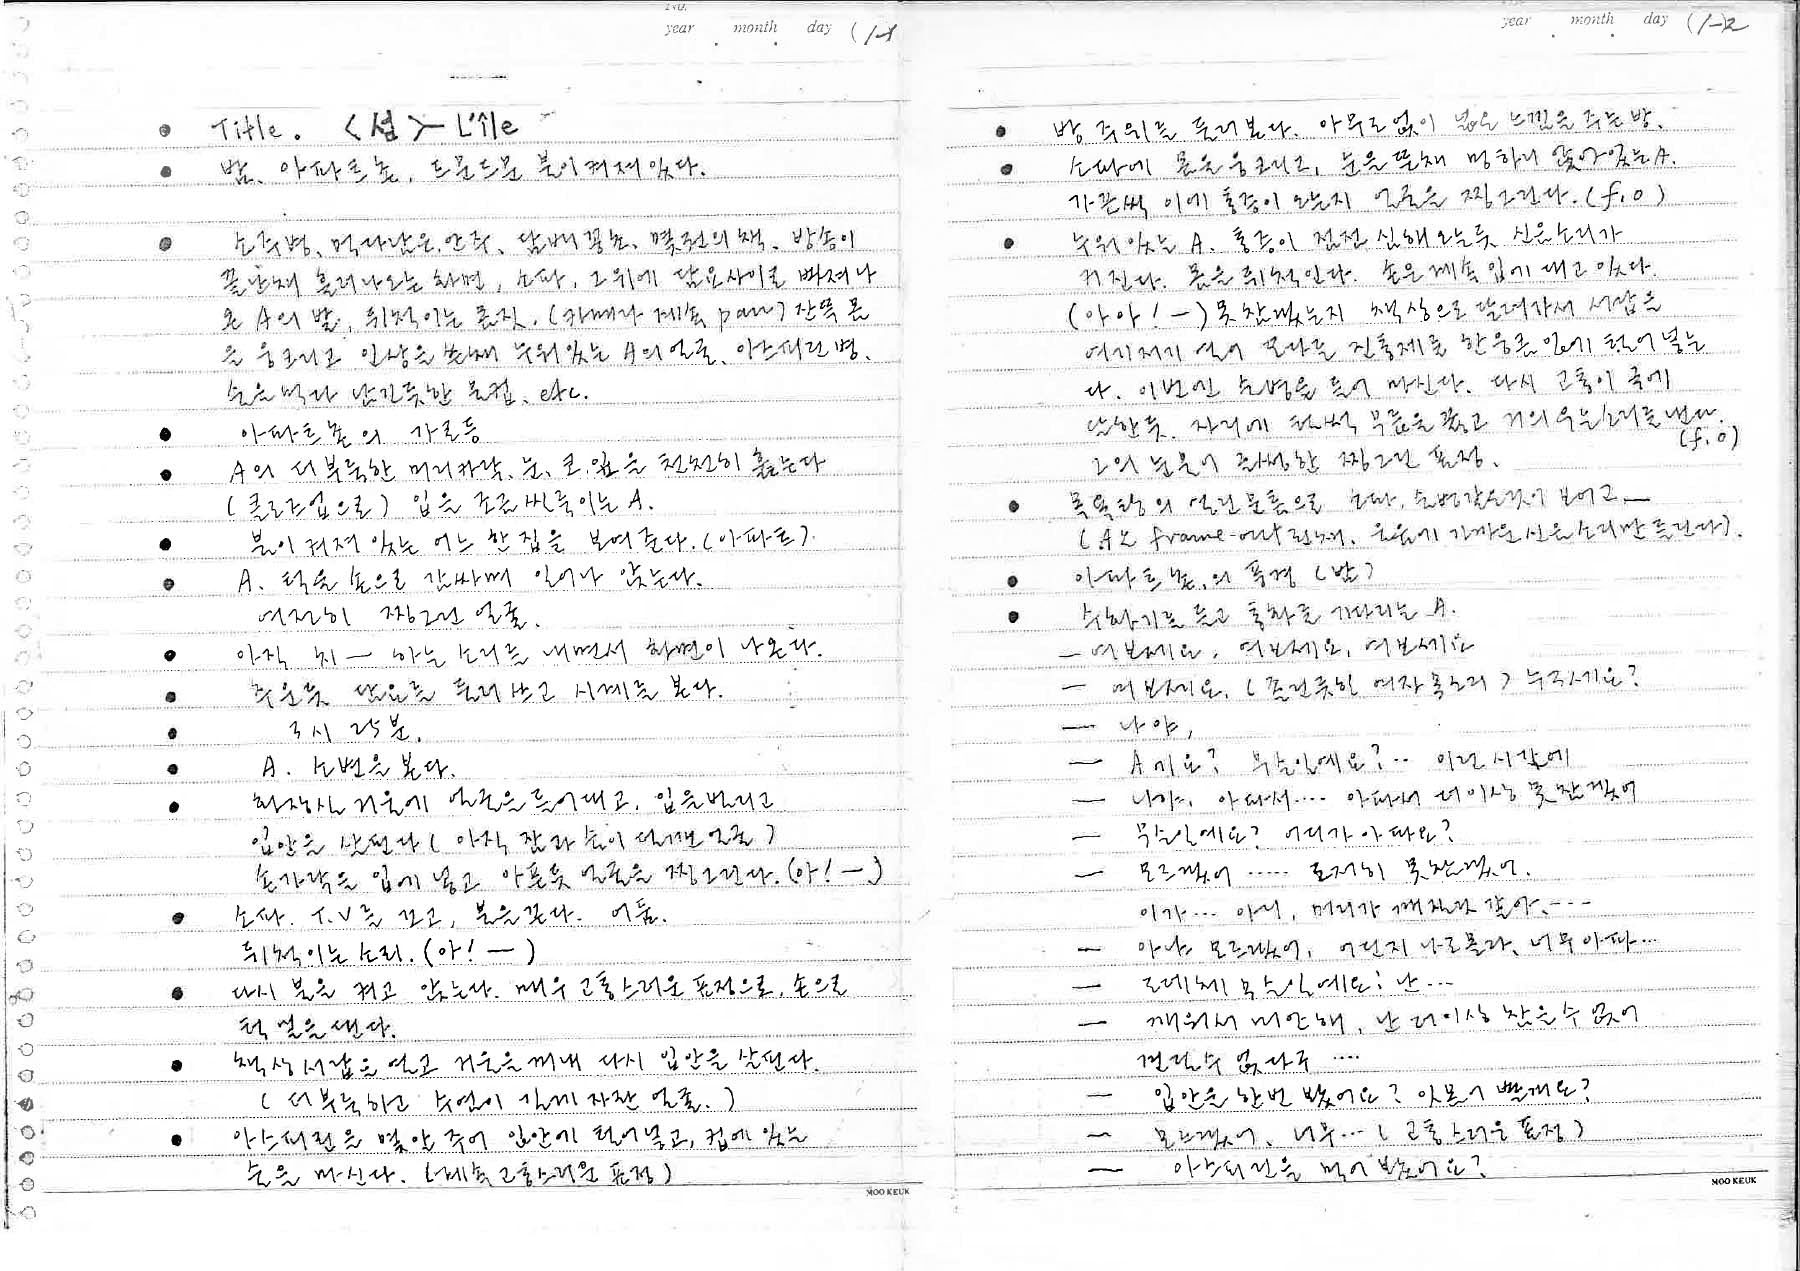 year month day (1-1
Title. <섬> - L'île
밤. 아파트 촌. 드문드문 불이 켜져 있다.
소주병, 먹다남은 안주, 담배꽁초, 몇 권의 책, 방송이
끝난채 흘러나오는 화면, 소파, 그 위에 담요사이로 빠져나
온 A의 발, 뒤척이는 몸짓. (카메라 계속 pan) 잔뜩 몸
을 웅크리고 인상을 쓴채 누워있는 A의 얼굴, 아스피린 병,
술을 먹다 남긴듯한 물컵, etc.
아파트촌의 가로등
A의 더부룩한 머리카락, 눈, 코, 입을 천천히 훑는다
(클로즈업으로) 입을 조금씩 움직이는 A.
불이 켜져 있는 어느 한 집을 보여준다. (아파트).
A. 턱을 손으로 감싸며 일어나 앉는다.
여전히 찡그린 얼굴.
아직 치— 하는 소리를 내면서 화면이 나온다.
추운듯 담요를 둘러싸고 시계를 본다.
3시 25분.
A. 소변을 본다.
화장실 거울에 얼굴을 들이대고, 입을 벌리고
입안을 살핀다 (아직 잠과 술이 덜깬 얼굴)
손가락을 입에 넣고 아픈듯 얼굴을 찡그린다. (아! —)
소파. T.V를 끄고, 불을 끈다. 어둠.
뒤척이는 소리. (아! —)
다시 불을 켜고 앉는다. 매우 고통스러운 표정으로, 손으로
턱 밑을 댄다.
책상서랍을 열고 거울을 꺼내 다시 입안을 살핀다.
(더부룩하고 수염이 길게 자란 얼굴.)
아스피린을 몇 알 주어 입안에 털어넣고, 컵에 있는
술을 마신다. (계속 고통스러운 표정)
MOO KEUK
year month day (1-2
방 주위를 둘러본다. 아무도 없이 넓은 느낌을 주는 방.
소파에 몸을 웅크리고, 눈을 뜬채 멍하니 앉아있는 A.
가끔씩 이에 통증이 오는지 얼굴을 찡그린다. (f.o)
누워있는 A. 통증이 점점 심해 오는듯 신음소리가
커진다. 몸을 뒤척인다. 손은 계속 입에 대고 있다.
(아아! —) 못참겠는지 책상으로 달려가서 서랍을
여기저기 열어 모다른 진통제를 한웅큼 입에 털어 넣는
다. 이번엔 술병을 들어 마신다. 다시 고통이 극에
달한듯. 자리에 털썩 무릎을 꿇고 거의 우는소리를 낸다.
(f.o)
그의 눈물이 글썽한 찡그린 표정.
목욕탕의 열린 문틈으로 소파, 술병 보이고—
(A는 frame-out 된채, 울음에 가까운 신음소리만 들린다).
아파트촌의 풍경 (밤)
수화기를 들고 통화를 기다리는 A.
— 여보세요, 여보세요, 여보세요
— 여보세요. (졸린듯한 여자 목소리) 누구세요?
— 나야,
— A 씨요? 무슨일예요?.. 이런 시각에
— 나야, 아파서.... 아파서 더이상 못참겠어
— 무슨일예요? 어디가 아파요?
— 모르겠어 ..... 도저히 못참겠어.
이가... 아니, 머리가 깨진것 같아. ---
— 아냐 모르겠어, 어딘지 나도몰라, 너무아파...
— 도데체 무슨일예요! 난...
— 깨워서 미안해, 난 더이상 참을수 없어
견딜수 없다구 ....
— 입안을 한번 봤어요? 잇몸이 빨개요?
— 모르겠어, 너무... (고통스러운 표정)
— 아스피린을 먹어 봤어요?
MOO KEUK